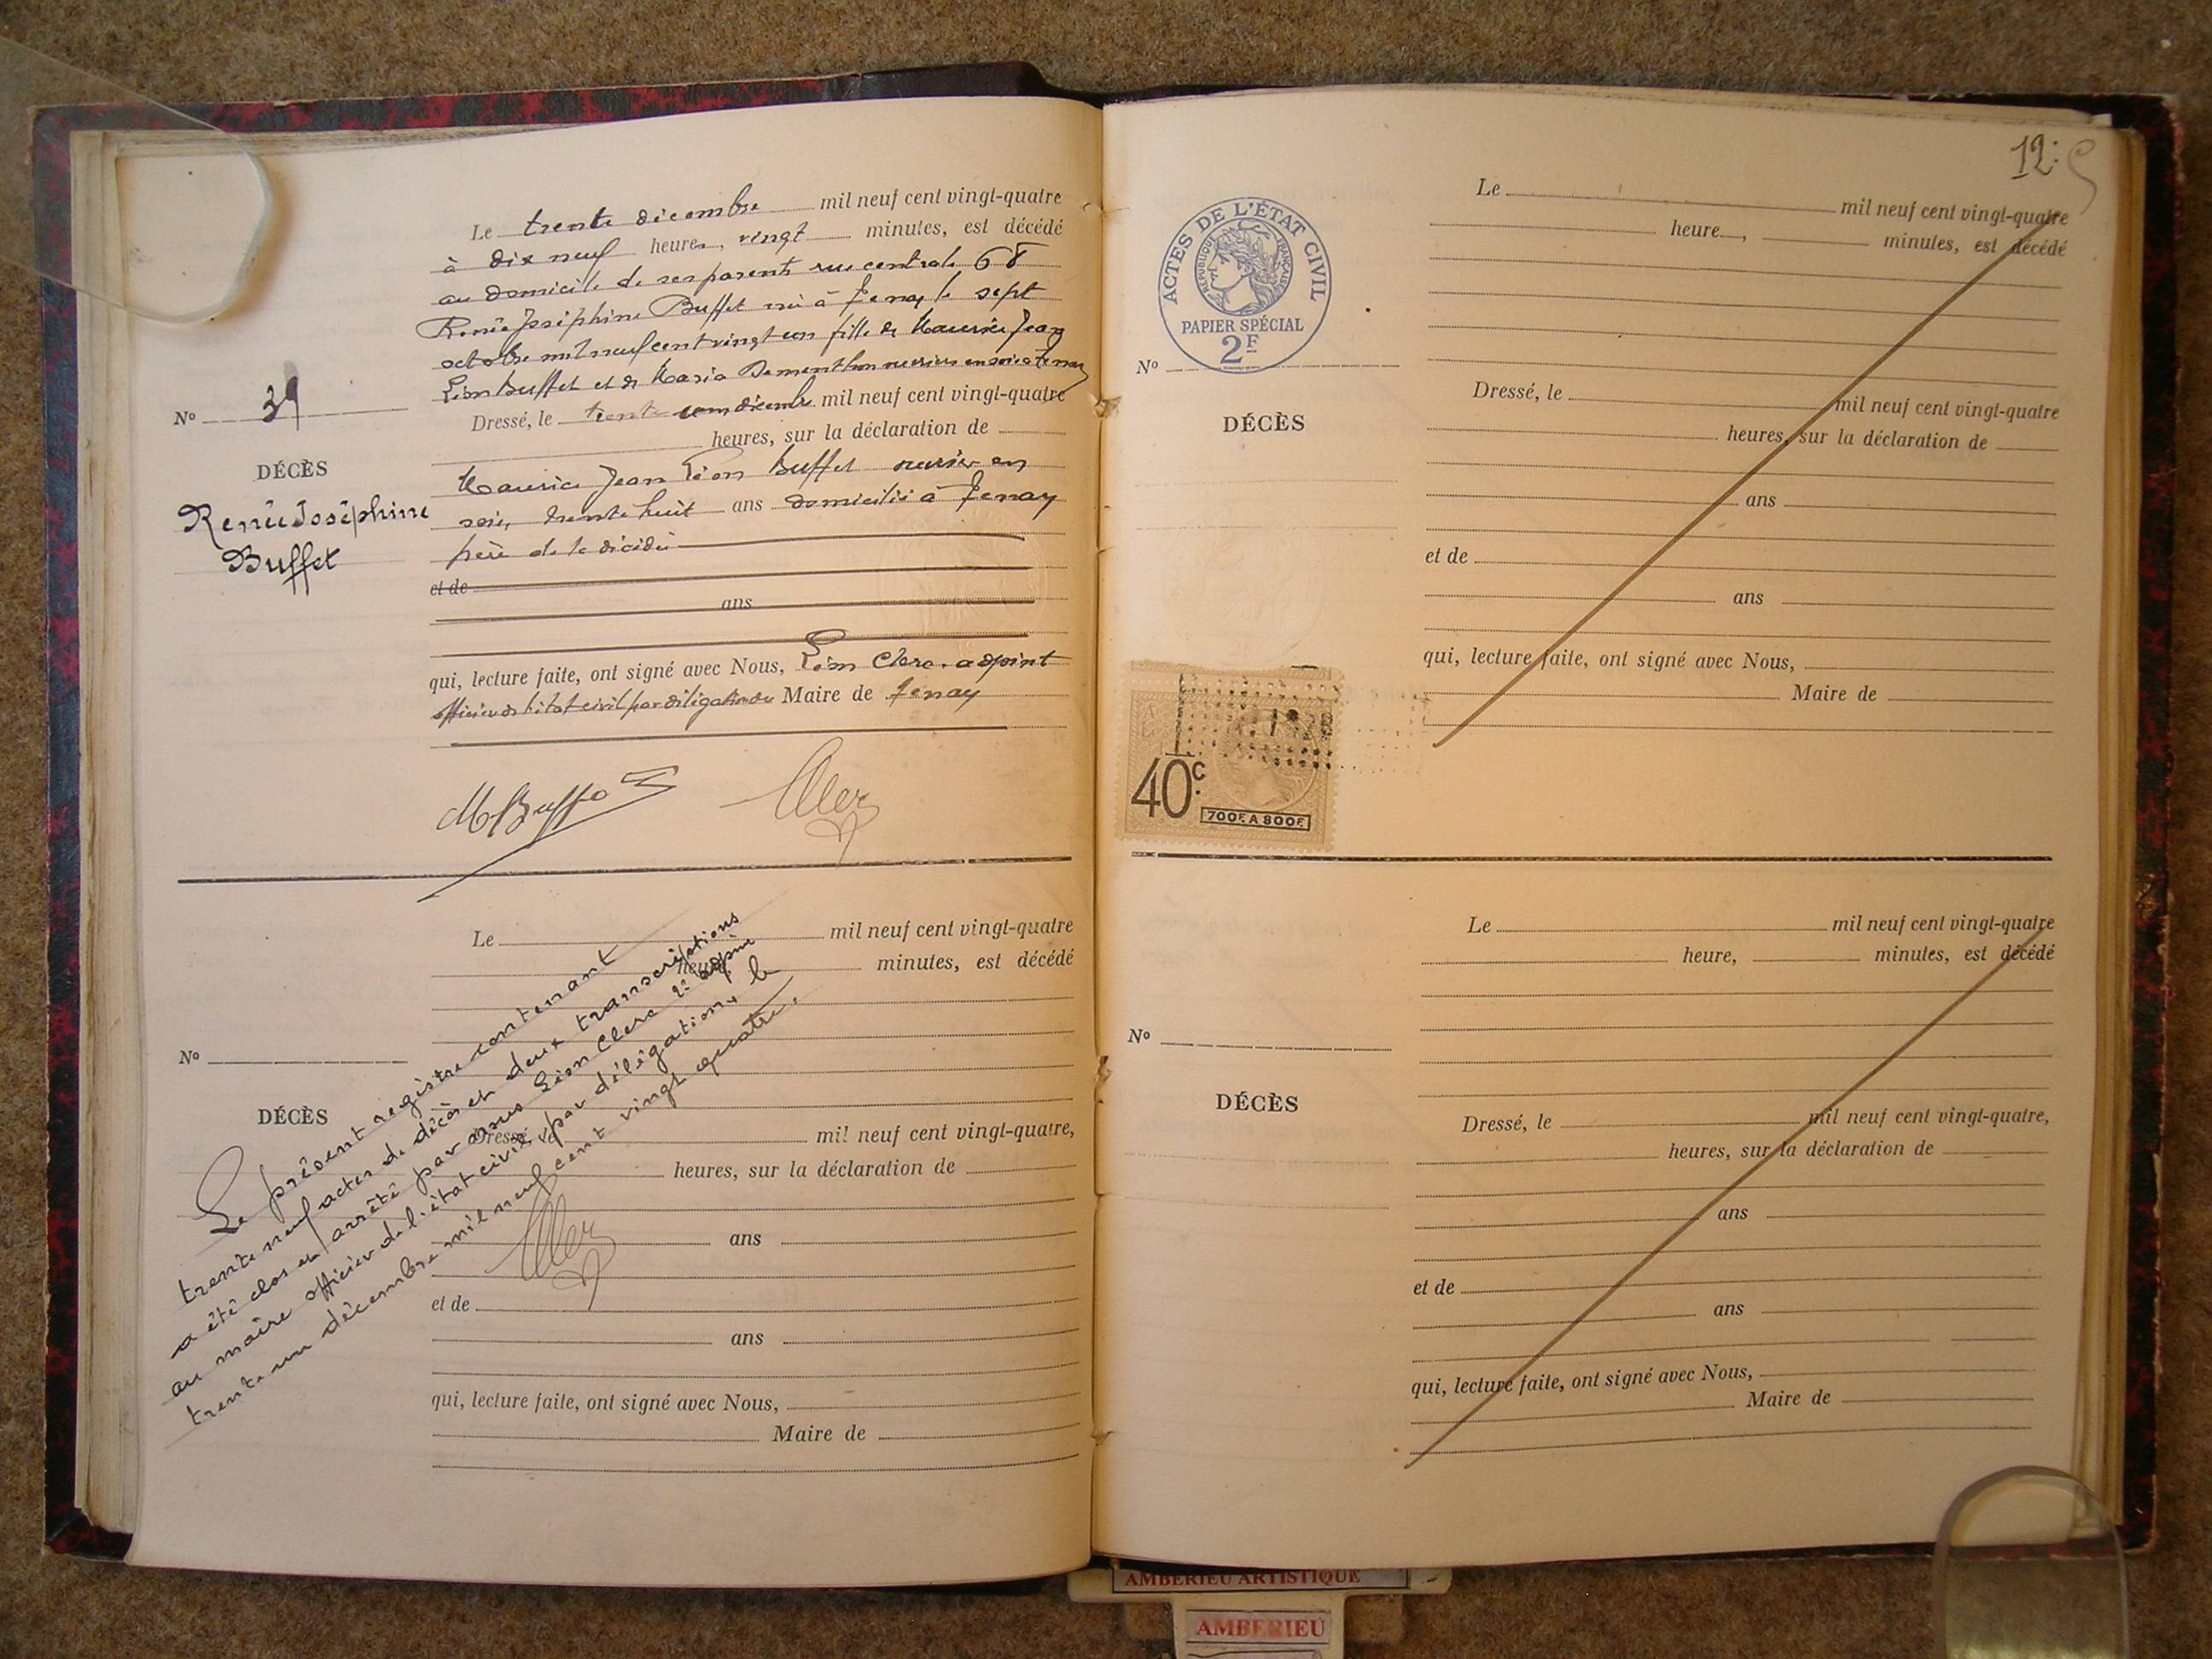 Le trente décembre mil neuf cent vingt-quatre
à dix neuf heures, vingt minutes, est décédé
au domicile de ses parents rue centrale 68
Renée Joséphine Buffet née à Tenay le sept
octobre mil neuf cent vingt un fille de Maurice Jean
Léon Buffet et de Maria Dementhon ouvriers en soie à Tenay
Nº 39
Dressé, le trente un décembre mil neuf cent vingt-quatre
heures, sur la déclaration de
DÉCÈS
Renée Joséphine
Buffet
Maurice Jean Léon Buffet ouvrier en
soie, trente huit ans domicilié à Tenay
père de la décédée
et de
ans
qui, lecture faite, ont signé avec Nous, Léon Clerc. adjoint
officier de l'état civil par délégation du Maire de Tenay
MBuffet
Clerc
Le mil neuf cent vingt-quatre
heure minutes, est décédé
Nº
DÉCÈS
Dressé, le mil neuf cent vingt-quatre,
heures, sur la déclaration de
ans
et de
ans
qui, lecture faite, ont signé avec Nous,
Maire de
Le présent registre contenant
trente neuf actes de décès et deux transcriptions
a été clos et arrêté par nous Léon Clerc
au maire officier de l'état civil par délégation, le
trente un décembre mil neuf cent vingt quatre.
Clerc
ACTES DE L'ÉTAT CIVIL
RÉPUBLIQUE FRANÇAISE
PAPIER SPÉCIAL
2F
Le mil neuf cent vingt-quatre
heure, minutes, est décédé
Nº
DÉCÈS
Dressé, le mil neuf cent vingt-quatre
heures, sur la déclaration de
ans
et de
ans
qui, lecture faite, ont signé avec Nous,
Maire de
40c
700F. A 800F.
Le mil neuf cent vingt-quatre
heure, minutes, est décédé
Nº
DÉCÈS
Dressé, le mil neuf cent vingt-quatre,
heures, sur la déclaration de
ans
et de
ans
qui, lecture faite, ont signé avec Nous,
Maire de
AMBERIEU ARTISTIQUE
AMBERIEU